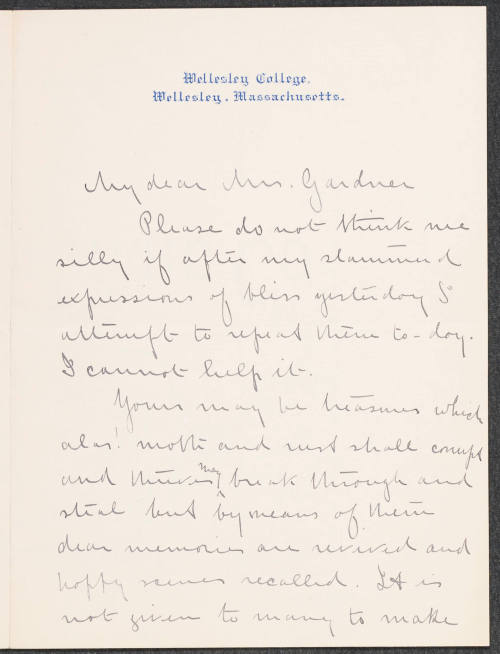 Wellesley College.
Wellesley, Massachusetts.
My dear Mrs. Gardner
Please do not think me
silly if after my stammered
expressions of bliss yesterday I
attempt to repeat them to-day.
I cannot help it.
Yours may be treasures which
alas! moth and rust shall corrupt
and thieves may break through and
steal but by means of them
dear memories are revived and
happy scenes recalled. It is
not given to many to make